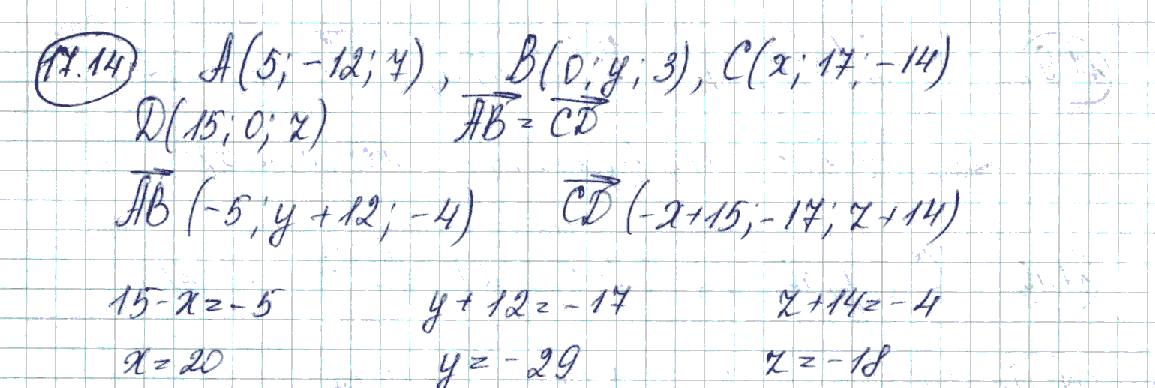 17.14 A(5; -12; 7), B(0; y; 3), C(x; 17; -14)
D(15; 0; z) AB = CD
AB (-5; y + 12; -4) CD (-x+15; -17; z+14)
15-x=-5 y+12=-17 z+14=-4
x=20 y=-29 z=-18